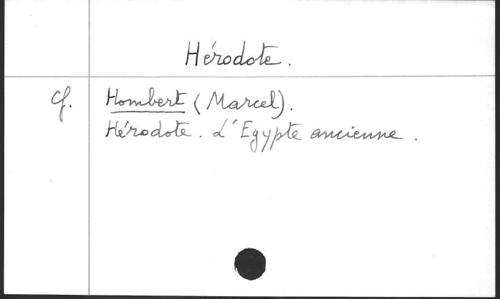 Hérodote.
Cf. Hombert (Marcel).
Hérodote. L'Egypte ancienne.